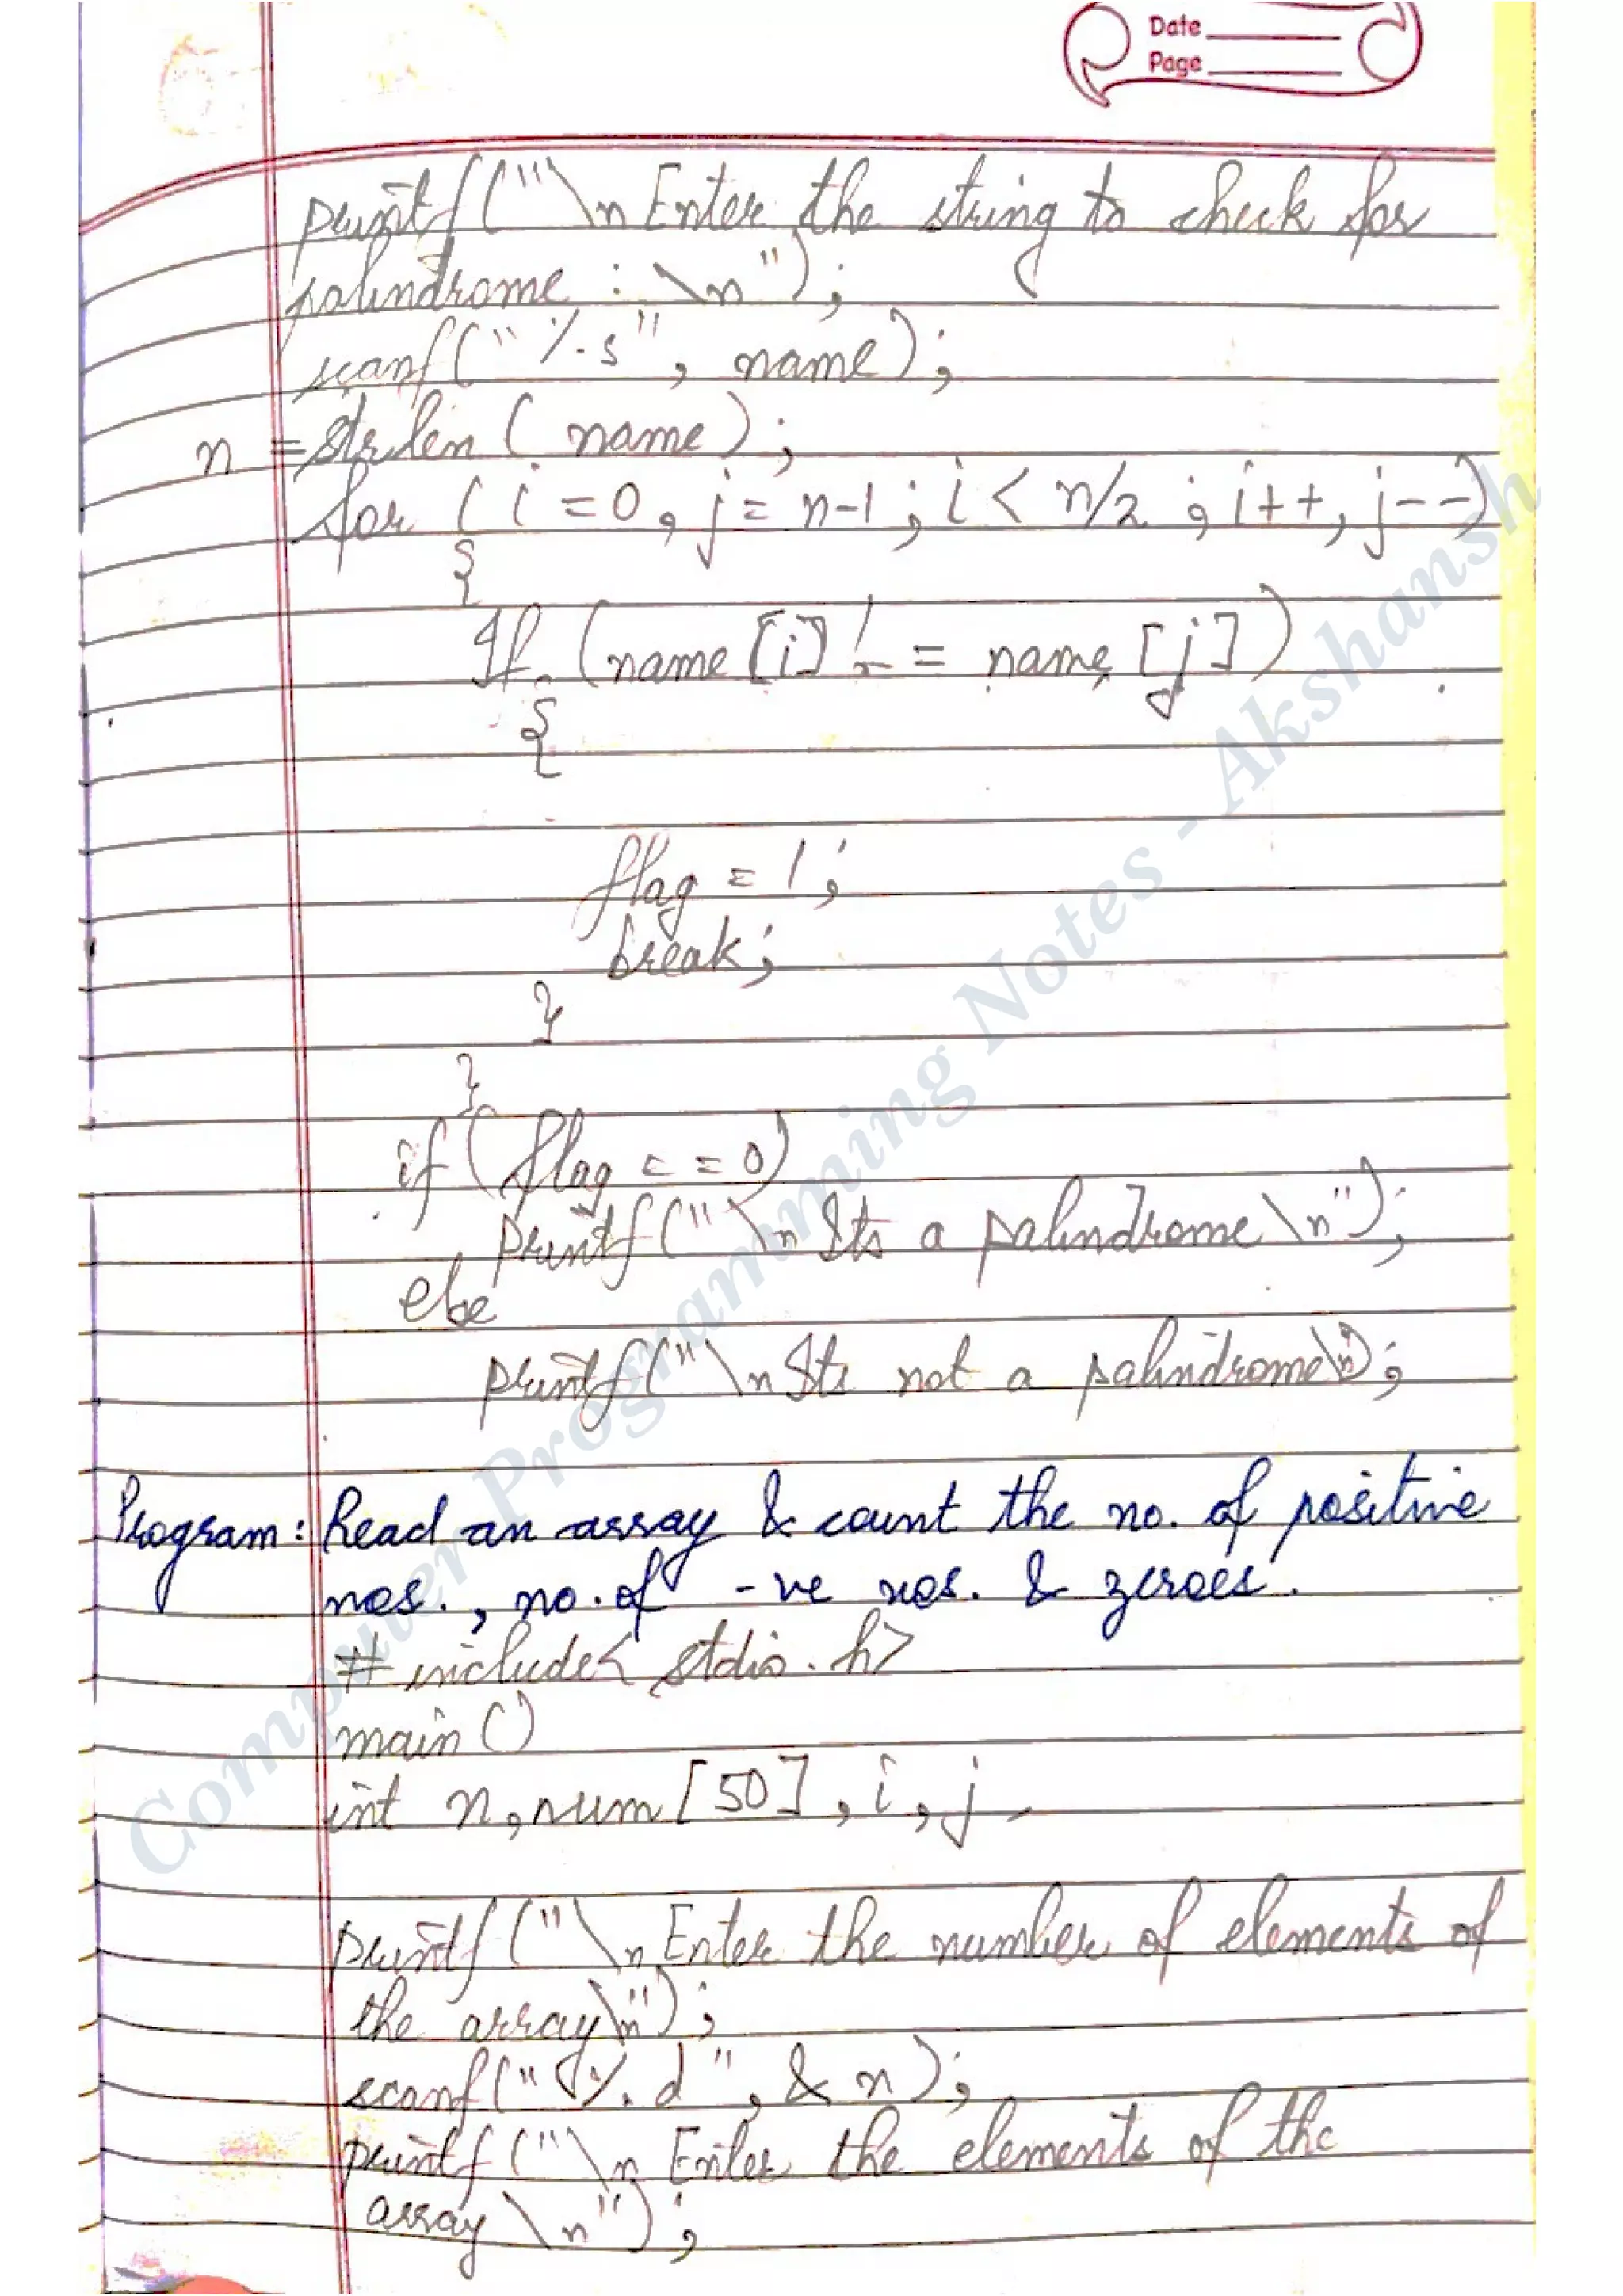 Date
Page
printf("\n Enter the string to check for
palindrome : \n");
scanf("%s", name);
n = strlen ( name );
for ( i = 0, j = n-1 ; i < n/2 ; i++, j--)
{
If (name [i] != name [j])
{
flag = 1;
break;
}
}
if ( flag == 0)
printf("\n Its a palindrome \n");
else
printf("\n Its not a palindrome\n);
Program: Read an array & count the no. of positive
nos., no. of -ve nos. & zeroes.
# include< stdio.h>
main ()
int n, num [50], i, j,
printf("\n Enter the number of elements of
the array\n");
scanf("%d", & n);
printf("\n Enter the elements of the
array \n");
Computer Programming Notes - Akshansh